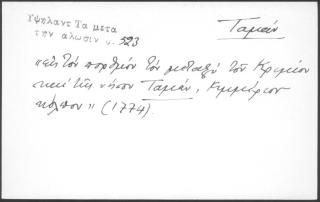 Ὑψηλαντ Τα μετα
την αλωσιν σ. 523
Ταμάν
"εἰς τὸν πορθμὸν τὸν μεταξὺ τοῦ Κριμαίου
καὶ τῆς νήσου Ταμάν, Κιμμέριον
κόλπον" (1774).